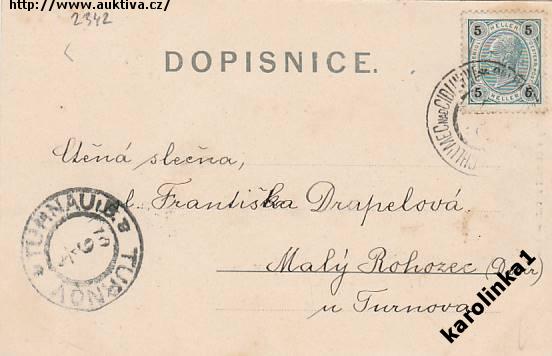 http://www.auktiva.cz/
2342
DOPISNICE.
5 HELLER 5
5 HELLER 5
CHLUMEC NAD CIDL.
Ctěná slečna,
sl. Františka Drapelová,
Malý Rohozec (Dvůr)
u Turnova
TURNAU I. B.
TURNOV
karolinka1